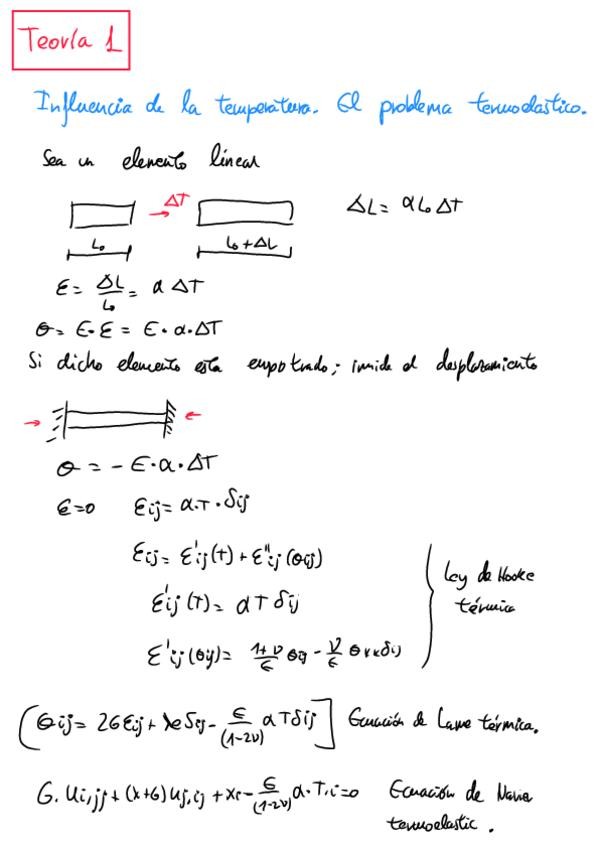 Teoría 1
Influencia de la temperatura. El problema termoelastico.
Sea un elemento lineal
ΔT
ΔL = α L₀ ΔT
L₀
L₀ + ΔL
ε = ΔL/L₀ = α ΔT
σ = E · ε = E · α · ΔT
Si dicho elemento esta empotrado; impide el desplazamiento
σ = - E · α · ΔT
ε = 0 εij = α · T · δij
εij = ε'ij (T) + ε''ij (σij)
ε'ij (T) = α T δij
ε'ij (σij) = 1+ν/E σij - ν/E σkk δij
Ley de Hooke
térmica
σij = 2G εij + λe δij - E/(1-2ν) α T δij Ecuación de Lame térmica.
G · ui,jj + (λ+G) uj,ij + xi - E/(1-2ν) α · T,i = 0 Ecuación de Navie
termoelastic.